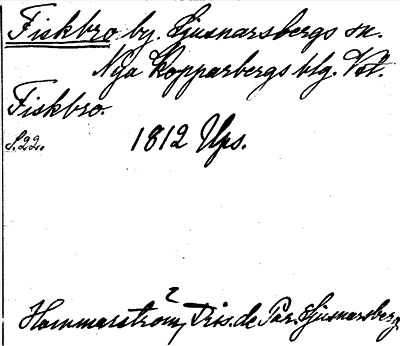 Fiskbro by. Ljusnarsbergs sn.
Nya Kopparbergs blg. Vstl.
Fiskbro.
S.22. 1812 Ups.
Hammarström, Dis. de Par. Ljusnarsberg